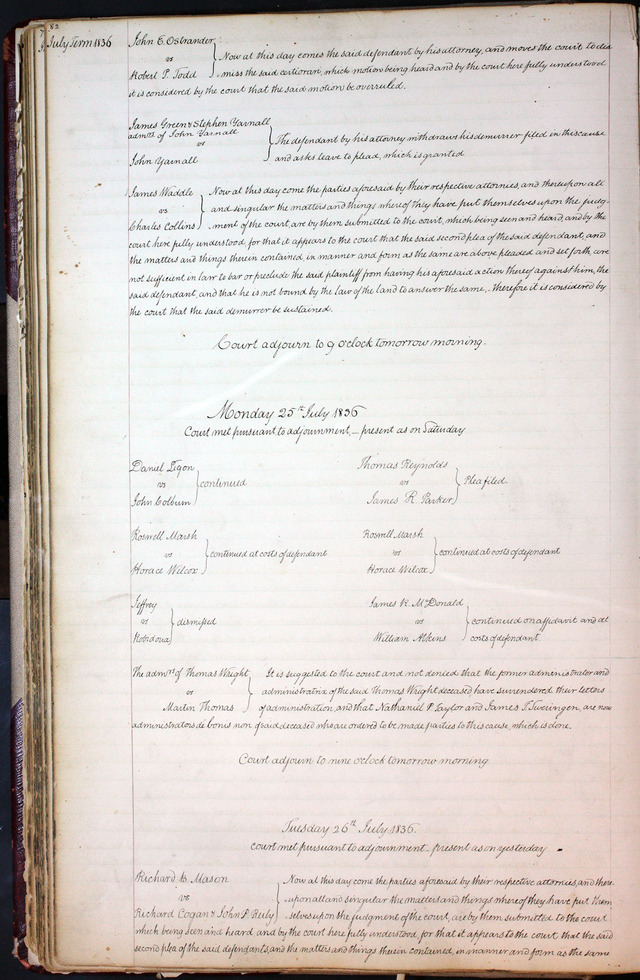 82
July Term 1836
John E. Ostrander
vs
Robert P. Todd
Now at this day comes the said defendant by his attorney, and moves the court to dis
miss the said certiorari, which motion being heard and by the court here fully understood
it is considered by the court that the said motion be overruled.
James Green & Stephen Yarnall
admrs of John Yarnall
vs
John Yarnall
The defendant by his attorney withdraws his demurrer filed in this cause
and asks leave to plead, which is granted
James Waddle
vs
Charles Collins
Now at this day come the parties aforesaid by their respective attornies, and thereupon all
and singular the matters and things whereof they have put themselves upon the judg-
ment of the court, are by them submitted to the court, which being seen and heard, and by the
court here fully understood, for that it appears to the court that the said second plea of the said defendant, and
the matters and things therein contained, in manner and form as the same are above pleaded and set forth, are
not sufficient in law to bar or preclude the said plaintiff from having his aforesaid action thereof against him, the
said defendant, and that he is not bound by the law of the land to answer the same,. therefore it is considered by
the court that the said demurrer be sustained.
Court adjourn to 9 o'clock tomorrow morning.
Monday 25th July 1836
Court met pursuant to adjournment, – present as on Saturday
Daniel Tigon
vs
John Colburn
continued
Thomas Reynolds
vs
James R. Parker
Plea filed
Roswell Marsh
vs
Horace Wilcox
continued at costs of defendant
Roswell Marsh
vs
Horace Wilcox
continued at costs of defendant
Jeffrey
vs
Robidoux
dismissed
James K. McDonald
vs
William Atkins
continued on affidavit and at
costs of defendant
The admrs of Thomas Wright
vs
Martin Thomas
It is suggested to the court and not denied that the former administrator and
administratrix of the said Thomas Wright deceased have surrendered their letters
of administration, and that Nathaniel P. Taylor and James T. Sweringen, are now
administrators de bonis non of said deceased who are ordered to be made parties to this cause, which is done.
Court adjourn to nine o'clock tomorrow morning
Tuesday 26th July 1836.
Court met pursuant to adjournment – present as on yesterday
Richard B. Mason
vs
Richard Cogan & John P. Reily
Now at this day come the parties aforesaid by their respective attornies, and there
upon all and singular the matters and things whereof they have put them
selves upon the judgment of the court, are by them submitted to the court
which being seen and heard and by the court here fully understood, for that it appears to the court that the said
second plea of the said defendants, and the matters and things therein contained, in manner and form as the same